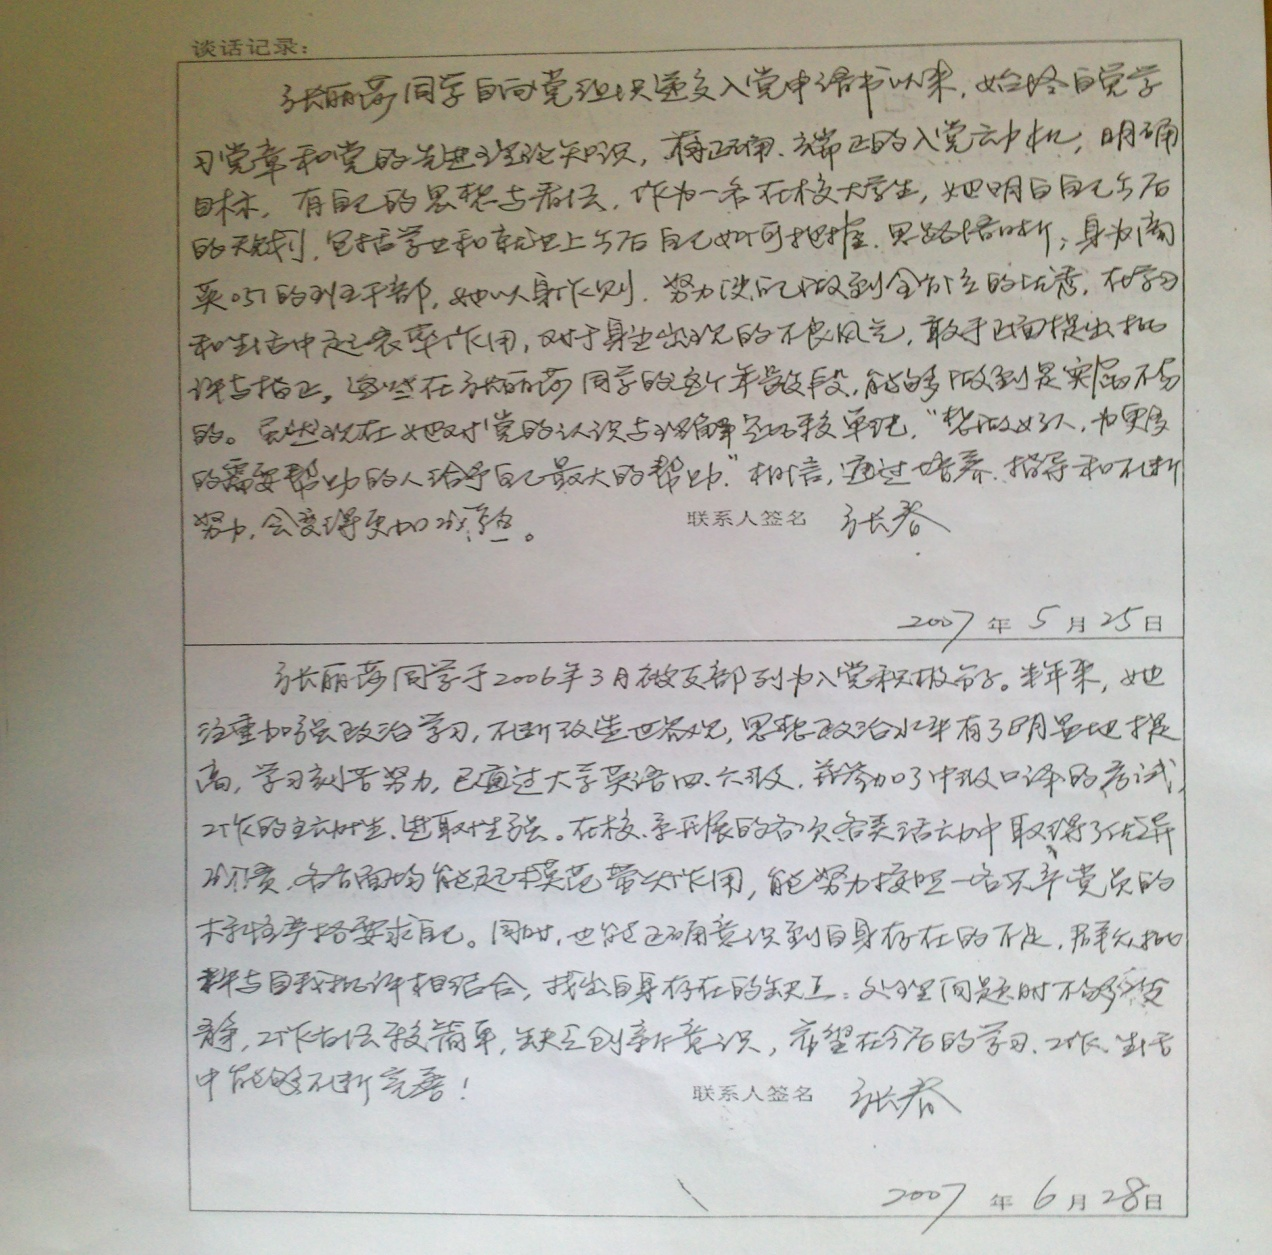 谈话记录：
张丽莎同学自向党组织递交入党申请书以来，始终自觉学
习党章和党的先进理论知识，有正确、端正的入党动机，明确
目标，有自己的思想与看法，作为一名在校大学生，她明白自己今后
的规划，包括学业和就业上今后自己如何把握，思路清晰；身为商
英051的班干部，她以身作则，努力使自己做到全方位的优秀，在学习
和生活中起表率作用，对于身边出现的不良风气，敢于正面提出批
评与指正。这些在张丽莎同学的这个年龄段，能够做到是实属不易
的。虽然现在她对党的认识与理解是比较单纯，“想做好人，为更多
的需要帮助的人给予自己最大的帮助”相信，通过培养、指导和不断
努力，会变得更加成熟。
联系人签名 张春
2007 年 5 月 25 日
张丽莎同学于2006年3月被支部列为入党积极分子。半年来，她
注重加强政治学习，不断改造世界观，思想政治水平有了明显地提
高，学习刻苦努力，已通过大学英语四、六级，并参加了中级口译的考试，
工作的主动性、进取性强。在校、系开展的各次各类活动中取得了优异
成绩，各方面均能起模范带头作用，能努力按照一名共产党员的
标准严格要求自己。同时，也能正确意识到自身存在的不足，群众批
评与自我批评相结合，找出自身存在的缺点：处理问题时不够冷
静，工作方法较简单，缺乏创新意识，希望在今后的学习、工作、生活
中能够不断完善！
联系人签名 张春
2007 年 6 月 28 日